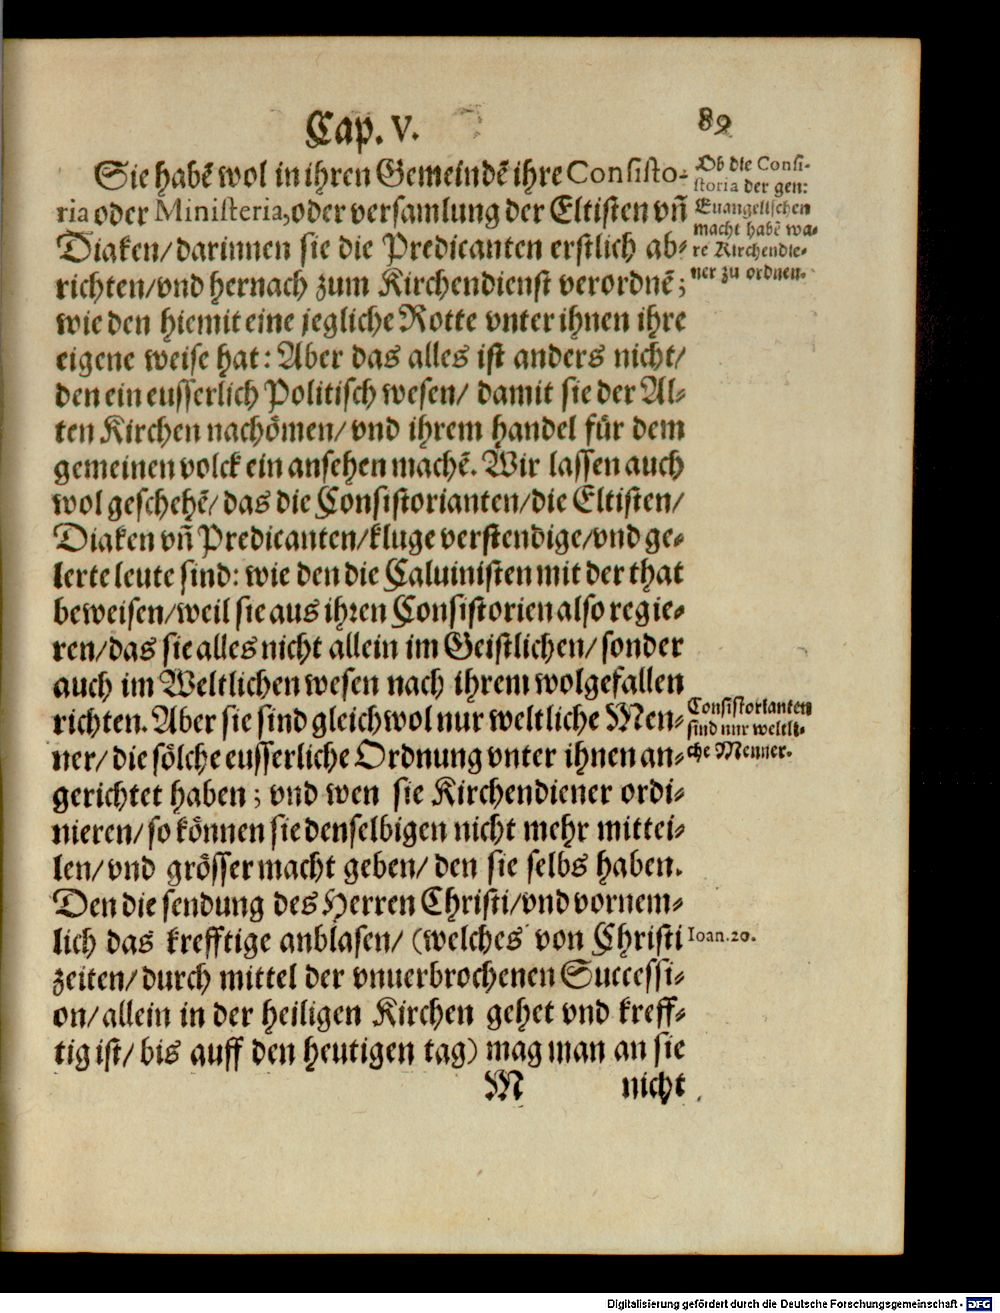 Cap. V.
89
Sie habẽ wol in ihren Gemeindẽ ihre Consisto-
ria oder Ministeria, oder versamlung der Eltisten vñ
Diaken/ darinnen sie die Predicanten erstlich ab-
richten/ vnd hernach zum Kirchendienst verordnẽ;
wie den hiemit eine jegliche Rotte vnter ihnen ihre
eigene weise hat: Aber das alles ist anders nicht/
den ein eusserlich Politisch wesen/ damit sie der Al-
ten Kirchen nachömen/ vnd ihrem handel für dem
gemeinen volck ein ansehen machẽ. Wir lassen auch
wol geschehẽ/ das die Consistorianten/ die Eltisten/
Diaken vñ Predicanten/ kluge verstendige/ vnd ge-
lerte leute sind: wie den die Caluinisten mit der that
beweisen/ weil sie aus ihren Consistorien also regie-
ren/ das sie alles nicht allein im Geistlichen/ sonder
auch im Weltlichen wesen nach ihrem wolgefallen
richten. Aber sie sind gleichwol nur weltliche Men-
ner/ die sölche eusserliche Ordnung vnter ihnen an-
gerichtet haben; vnd wen sie Kirchendiener ordi-
nieren/ so können sie denselbigen nicht mehr mittei-
len/ vnd grösser macht geben/ den sie selbs haben.
Den die sendung des Herren Christi/ vnd vornem-
lich das krefftige anblasen/ (welches von Christi
zeiten/ durch mittel der vnuerbrochenen Successi-
on/ allein in der heiligen Kirchen gehet vnd kreff-
tig ist/ bis auff den heutigen tag) mag man an sie
M nicht
Ob die Consi-
storia der gen:
Euangelischen
macht habẽ wa-
re Kirchendie-
ner zu ordnen.
Consistorianten
sind nur weltli-
che Menner.
Ioan. 20.
Digitalisierung gefördert durch die Deutsche Forschungsgemeinschaft - DFG